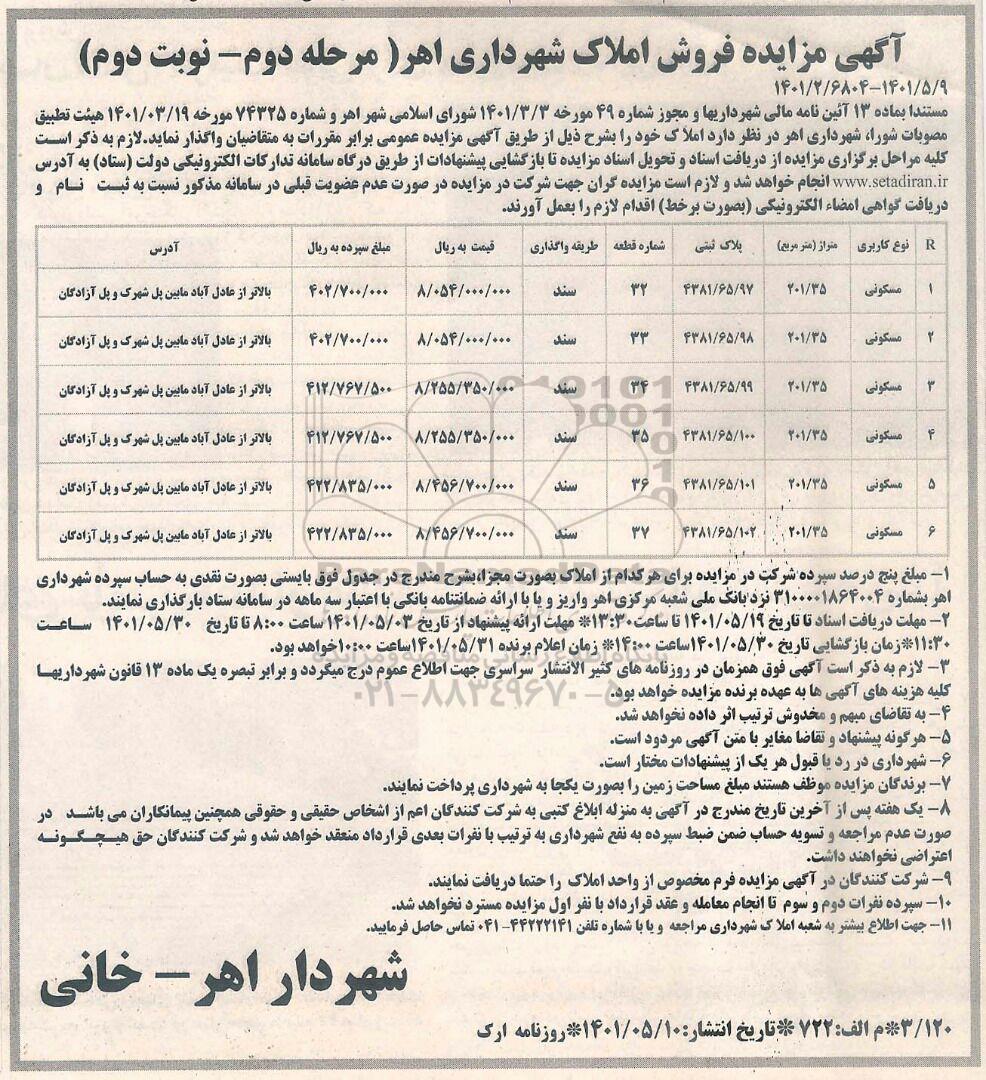 آگهی مزایده فروش املاک شهرداری اهر( مرحله دوم- نوبت دوم)
۱۴۰۱/۲/۶۸۰۴-۱۴۰۱/۵/۹
مستندا بماده ۱۳ آئین نامه مالی شهرداریها و مجوز شماره ۴۹ مورخه ۱۴۰۱/۳/۳ شورای اسلامی شهر اهر و شماره ۷۴۳۲۵ مورخه ۱۴۰۱/۰۳/۱۹ هیئت تطبیق
مصوبات شورا، شهرداری اهر در نظر دارد املاک خود را بشرح ذیل از طریق آگهی مزایده عمومی برابر مقررات به متقاضیان واگذار نماید.لازم به ذکر است
کلیه مراحل برگزاری مزایده از دریافت اسناد و تحویل اسناد مزایده تا بازگشایی پیشنهادات از طریق درگاه سامانه تدارکات الکترونیکی دولت (ستاد) به آدرس
www.setadiran.ir انجام خواهد شد و لازم است مزایده گران جهت شرکت در مزایده در صورت عدم عضویت قبلی در سامانه مذکور نسبت به ثبت نام و
دریافت گواهی امضاء الکترونیکی (بصورت برخط) اقدام لازم را بعمل آورند.
R نوع کاربری متراژ (متر مربع) پلاک ثبتی شماره قطعه طریقه واگذاری قیمت به ریال مبلغ سپرده به ریال آدرس
۱ مسکونی ۲۰۱/۳۵ ۴۳۸۱/۶۵/۹۷ ۳۲ سند ۸/۰۵۴/۰۰۰/۰۰۰ ۴۰۲/۷۰۰/۰۰۰ بالاتر از عادل آباد مابین پل شهرک و پل آزادگان
۲ مسکونی ۲۰۱/۳۵ ۴۳۸۱/۶۵/۹۸ ۳۳ سند ۸/۰۵۴/۰۰۰/۰۰۰ ۴۰۲/۷۰۰/۰۰۰ بالاتر از عادل آباد مابین پل شهرک و پل آزادگان
۳ مسکونی ۲۰۱/۳۵ ۴۳۸۱/۶۵/۹۹ ۳۴ سند ۸/۲۵۵/۳۵۰/۰۰۰ ۴۱۲/۷۶۷/۵۰۰ بالاتر از عادل آباد مابین پل شهرک و پل آزادگان
۴ مسکونی ۲۰۱/۳۵ ۴۳۸۱/۶۵/۱۰۰ ۳۵ سند ۸/۲۵۵/۳۵۰/۰۰۰ ۴۱۲/۷۶۷/۵۰۰ بالاتر از عادل آباد مابین پل شهرک و پل آزادگان
۵ مسکونی ۲۰۱/۳۵ ۴۳۸۱/۶۵/۱۰۱ ۳۶ سند ۸/۴۵۶/۷۰۰/۰۰۰ ۴۲۲/۸۳۵/۰۰۰ بالاتر از عادل آباد مابین پل شهرک و پل آزادگان
۶ مسکونی ۲۰۱/۳۵ ۴۳۸۱/۶۵/۱۰۲ ۳۷ سند ۸/۴۵۶/۷۰۰/۰۰۰ ۴۲۲/۸۳۵/۰۰۰ بالاتر از عادل آباد مابین پل شهرک و پل آزادگان
۱- مبلغ پنج درصد سپرده شرکت در مزایده برای هر کدام از املاک بصورت مجزا،بشرح مندرج در جدول فوق بایستی بصورت نقدی به حساب سپرده شهرداری
اهر بشماره ۳۱۰۰۰۰۱۸۶۴۰۰۴ نزد بانک ملی شعبه مرکزی اهر واریز و یا با ارائه ضمانتنامه بانکی با اعتبار سه ماهه در سامانه ستاد بارگذاری نمایند.
۲- مهلت دریافت اسناد تا تاریخ ۱۴۰۱/۰۵/۱۹ تا ساعت۱۳:۳۰* مهلت ارائه پیشنهاد از تاریخ ۱۴۰۱/۰۵/۰۳ ساعت ۸:۰۰ تا تاریخ ۱۴۰۱/۰۵/۳۰ ساعت
۱۱:۳۰*زمان بازگشایی تاریخ ۱۴۰۱/۰۵/۳۰ساعت ۱۴:۰۰* زمان اعلام برنده ۱۴۰۱/۰۵/۳۱ساعت ۱۰:۰۰خواهد بود.
۳- لازم به ذکر است آگهی فوق همزمان در روزنامه های کثیر الانتشار سراسری جهت اطلاع عموم درج میگردد و برابر تبصره یک ماده ۱۳ قانون شهرداریها
کلیه هزینه های آگهی ها به عهده برنده مزایده خواهد بود.
۴- به تقاضای مبهم و مخدوش ترتیب اثر داده نخواهد شد.
۵- هرگونه پیشنهاد و تقاضا مغایر با متن آگهی مردود است.
۶- شهرداری در رد یا قبول هر یک از پیشنهادات مختار است.
۷- برندگان مزایده موظف هستند مبلغ مساحت زمین را بصورت یکجا به شهرداری پرداخت نمایند.
۸- یک هفته پس از آخرین تاریخ مندرج در آگهی به منزله ابلاغ کتبی به شرکت کنندگان اعم از اشخاص حقیقی و حقوقی همچنین پیمانکاران می باشد در
صورت عدم مراجعه و تسویه حساب ضمن ضبط سپرده به نفع شهرداری به ترتیب با نفرات بعدی قرارداد منعقد خواهد شد و شرکت کنندگان حق هیچگونه
اعتراضی نخواهند داشت.
۹- شرکت کنندگان در آگهی مزایده فرم مخصوص از واحد املاک را حتما دریافت نمایند.
۱۰- سپرده نفرات دوم و سوم تا انجام معامله و عقد قرارداد با نفر اول مزایده مسترد نخواهد شد.
۱۱- جهت اطلاع بیشتر به شعبه املاک شهرداری مراجعه و یا با شماره تلفن ۴۴۲۲۲۱۴۱- ۰۴۱ تماس حاصل فرمایید.
شهردار اهر- خانی
۳/۱۲۰*م الف:۷۲۲ *تاریخ انتشار:۱۴۰۱/۰۵/۱۰*روزنامه ارک
ParsNamadData
۰۲۱-۸۸۳۴۹۶۷۰-۵